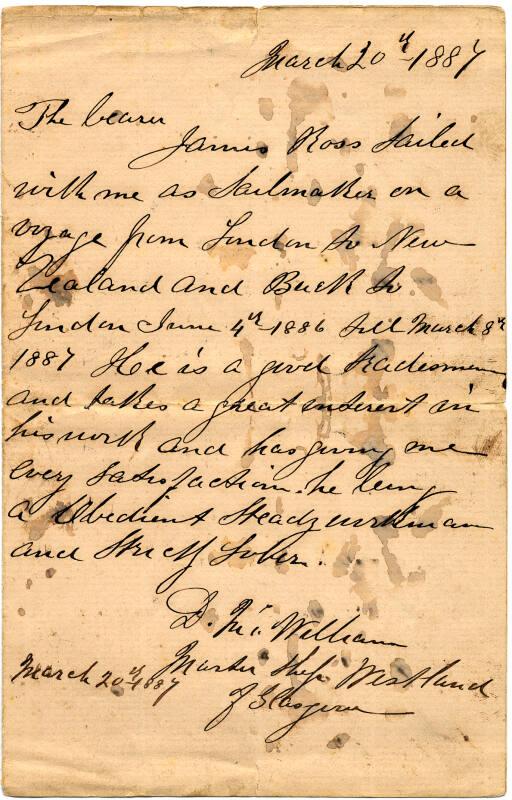 March 20th 1887
The bearer
James Ross Sailed
with me as Sailmaker on a
voyage from London to New
Zealand and Back to
London June 4th 1886 till March 8th
1887 He is a good tradesman
and takes a great interest in
his work and has giving me
every Satisfaction. he being
a Obedient Steady workman
and Strictly Sober.
D. Mc. William
Master Ship Westland
of Glasgow
March 20th 1887